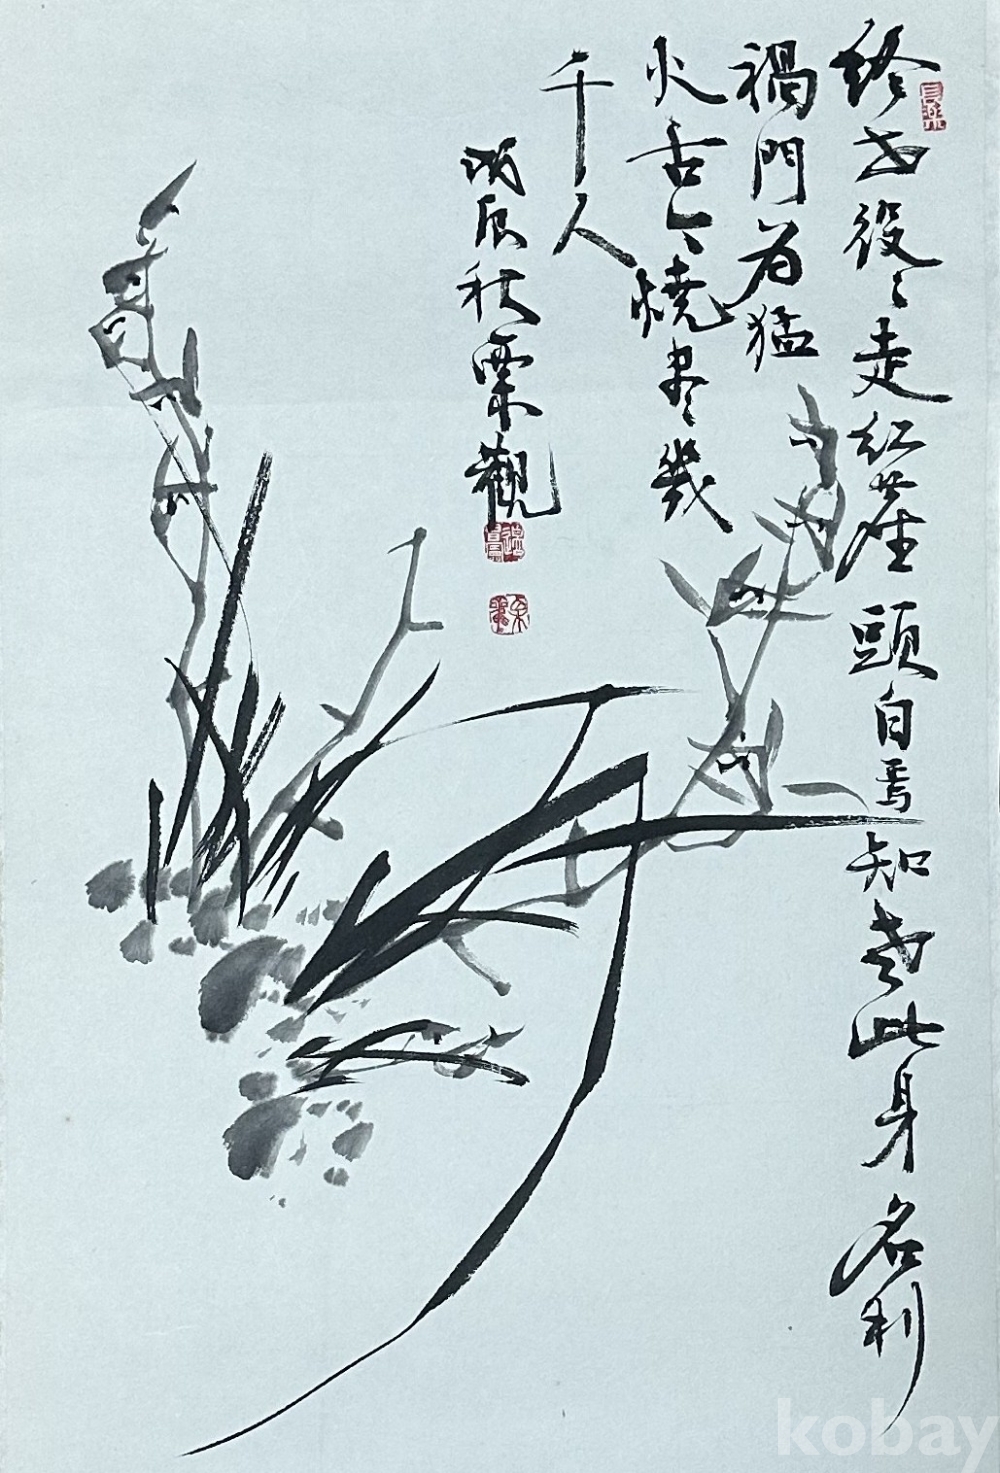 終世役役走紅塵頭白焉知老此身名利
禍門為猛
火古今燒盡幾
千人
戊辰秋栗觀
kobay